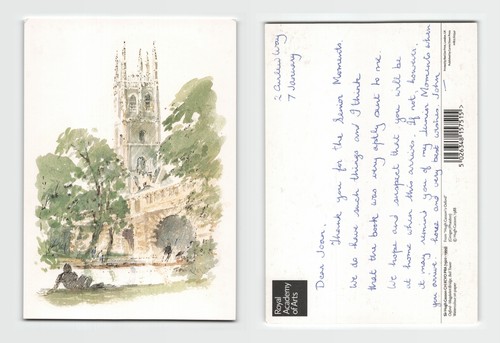 2 Curlew Way
7 January
Dear Joan,
Thank you for the Senior Moments.
We do have such things and I think
that the book was very aptly sent to me.
We hope and suspect that you will be
at home when this arrives. If not, however,
it may remind you of my Senior Moments when
you arrive home and very best wishes. John
Royal
Academy
of Arts
5 026348 157515 >